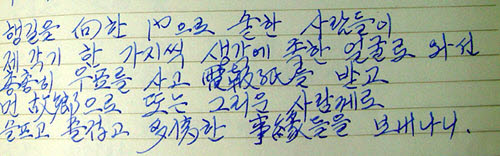 행길을 向한 門으로 숱한 사람들이
제각기 한 가지씩 생각에 족한 얼굴로 와선
총총히 우표를 사고 電報紙를 받고
먼 故鄕으로 또는 그리운 사람께로
슬프고 즐겁고 多情한 事緣들을 보내나니.